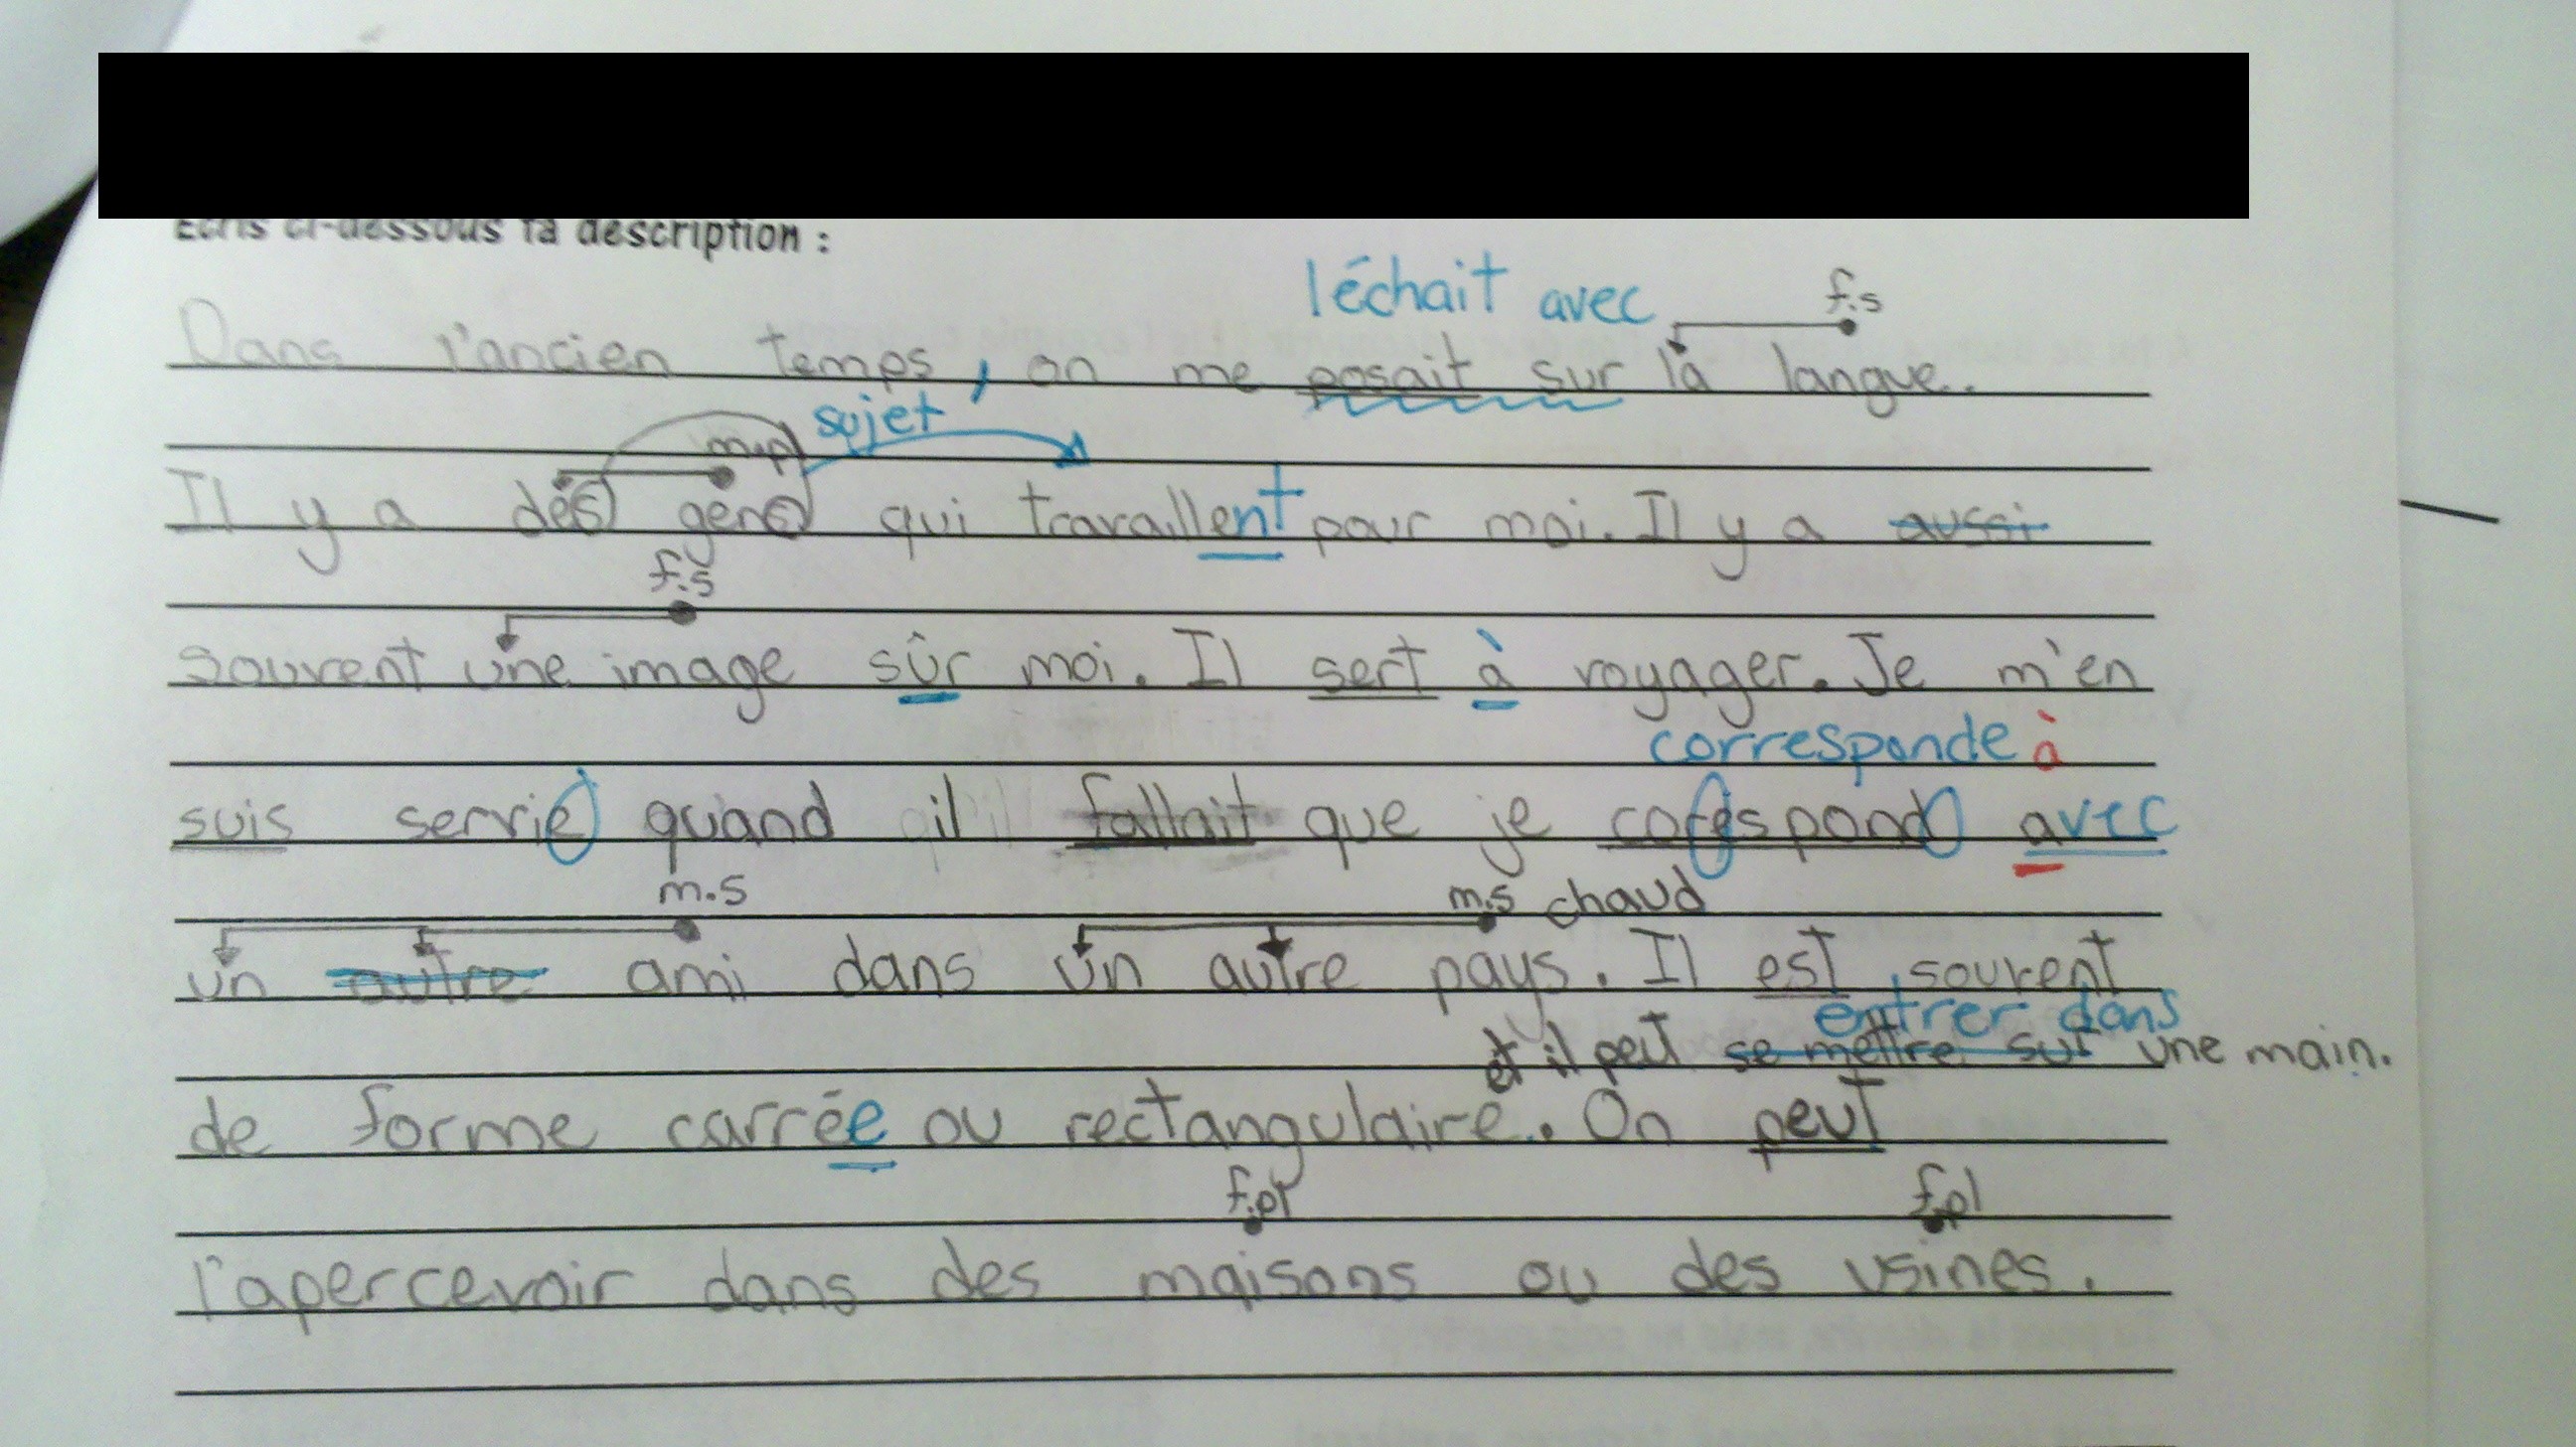 Écris ci-dessous ta description :
léchait avec f.s
Dans l'ancien temps, on me posait sur la langue.
m.pl sujet
Il y a des gens qui travaillent pour moi. Il y a aussi
f.s
souvent une image sûr moi. Il sert à voyager. Je m'en
corresponde à
suis servie quand il fallait que je corespond avec
m.s m.s chaud
un autre ami dans un autre pays. Il est souvent
entrer dans
et il peut se mettre sur une main.
de forme carrée ou rectangulaire. On peut
f.pl f.pl
l'apercevoir dans des maisons ou des usines.